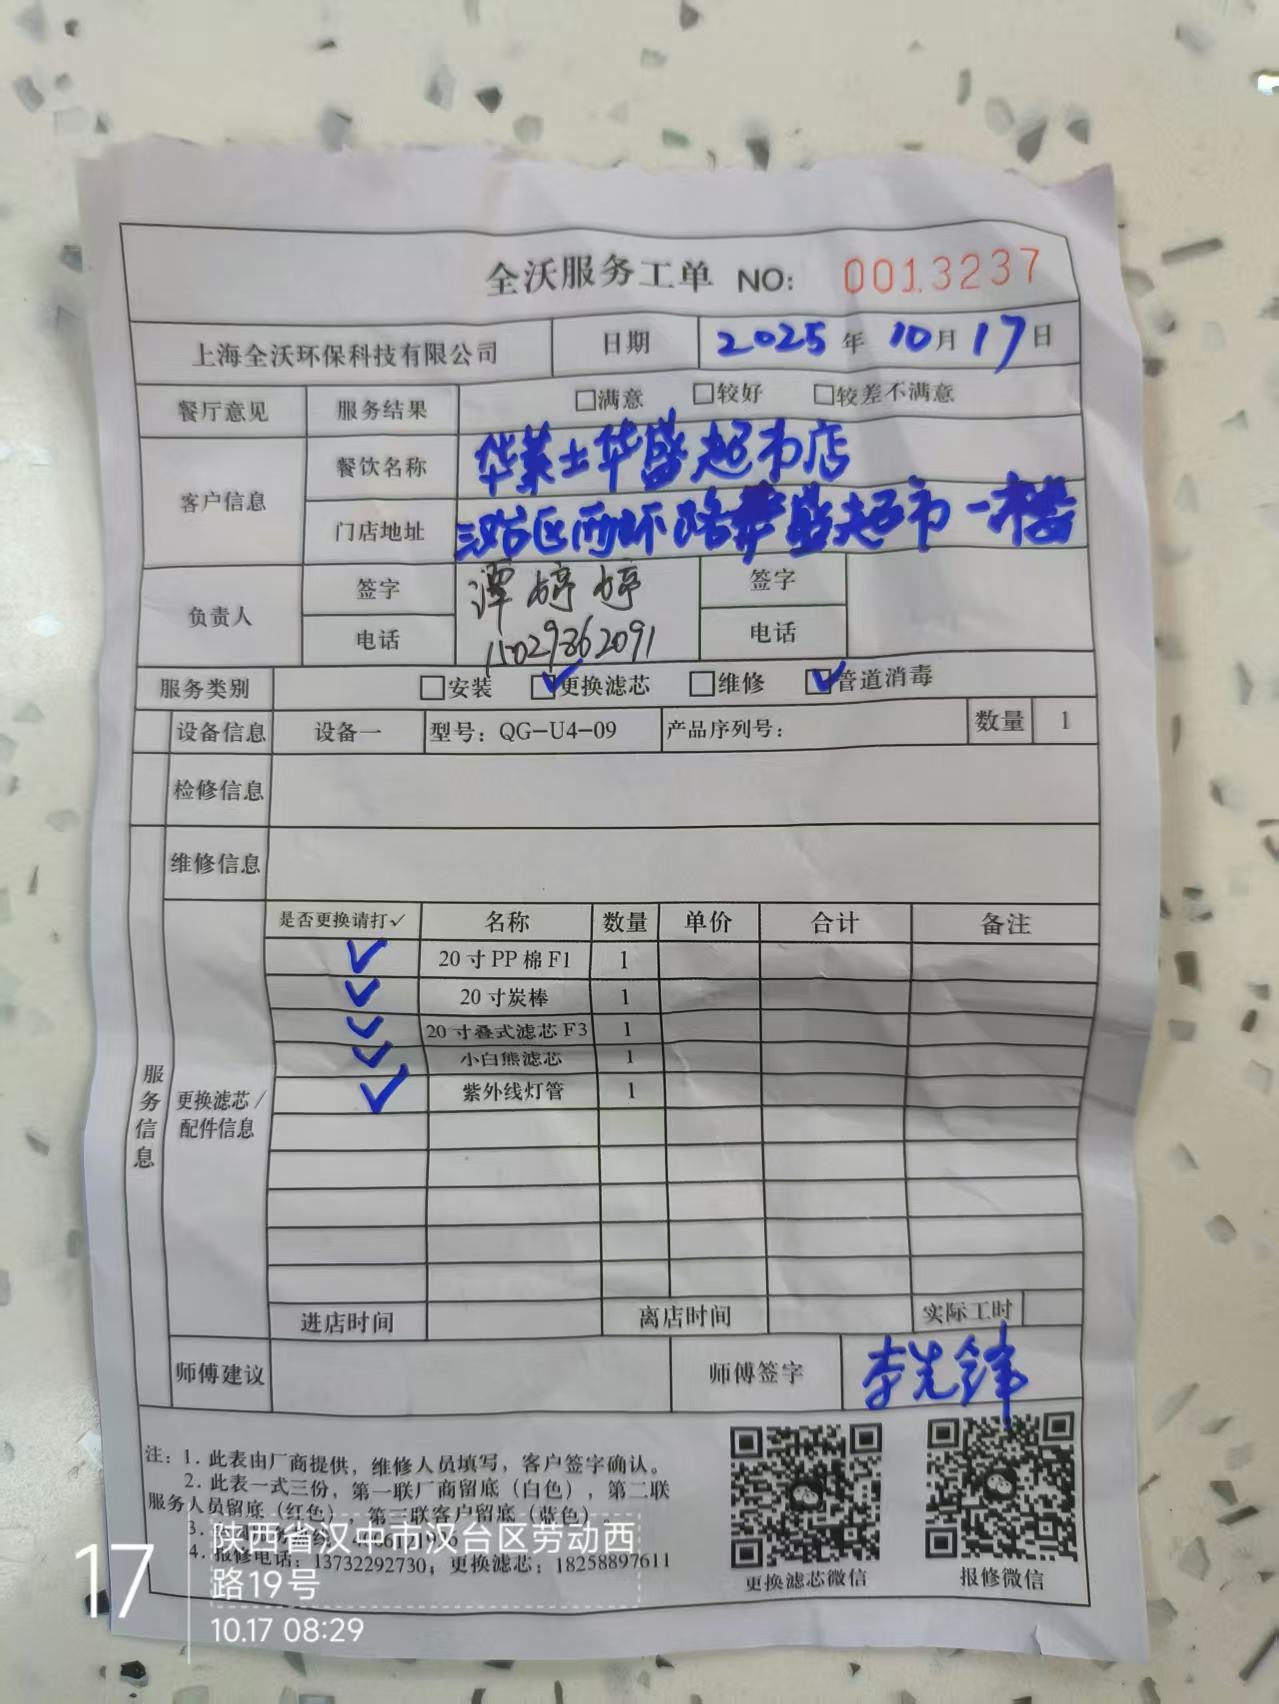 全沃服务工单 NO: 0013237
上海全沃环保科技有限公司 日期 2025年10月17日
餐厅意见 服务结果 □满意 □较好 □较差不满意
客户信息 餐饮名称 华莱士华盛超市店
门店地址 汉台区西环路华盛超市一楼
负责人 签字 谭婷婷 签字
电话 15029362091 电话
服务类别 □安装 ☑更换滤芯 □维修 ☑管道消毒
设备信息 设备一 型号：QG-U4-09 产品序列号： 数量 1
检修信息
维修信息
是否更换请打✓ 名称 数量 单价 合计 备注
✓ 20寸PP棉F1 1
✓ 20寸炭棒 1
✓ 20寸叠式滤芯F3 1
✓ 小白熊滤芯 1
✓ 紫外线灯管 1
服务信息
更换滤芯/
配件信息
进店时间 离店时间 实际工时
师傅建议 师傅签字 李先锋
注：1. 此表由厂商提供，维修人员填写，客户签字确认。
2. 此表一式三份，第一联厂商留底（白色），第二联
服务人员留底（红色），第三联客户留底（蓝色）。
3.
4. 报修电话：13732292730；更换滤芯：18258897611
更换滤芯微信 报修微信
17
陕西省汉中市汉台区劳动西
路19号
10.17 08:29